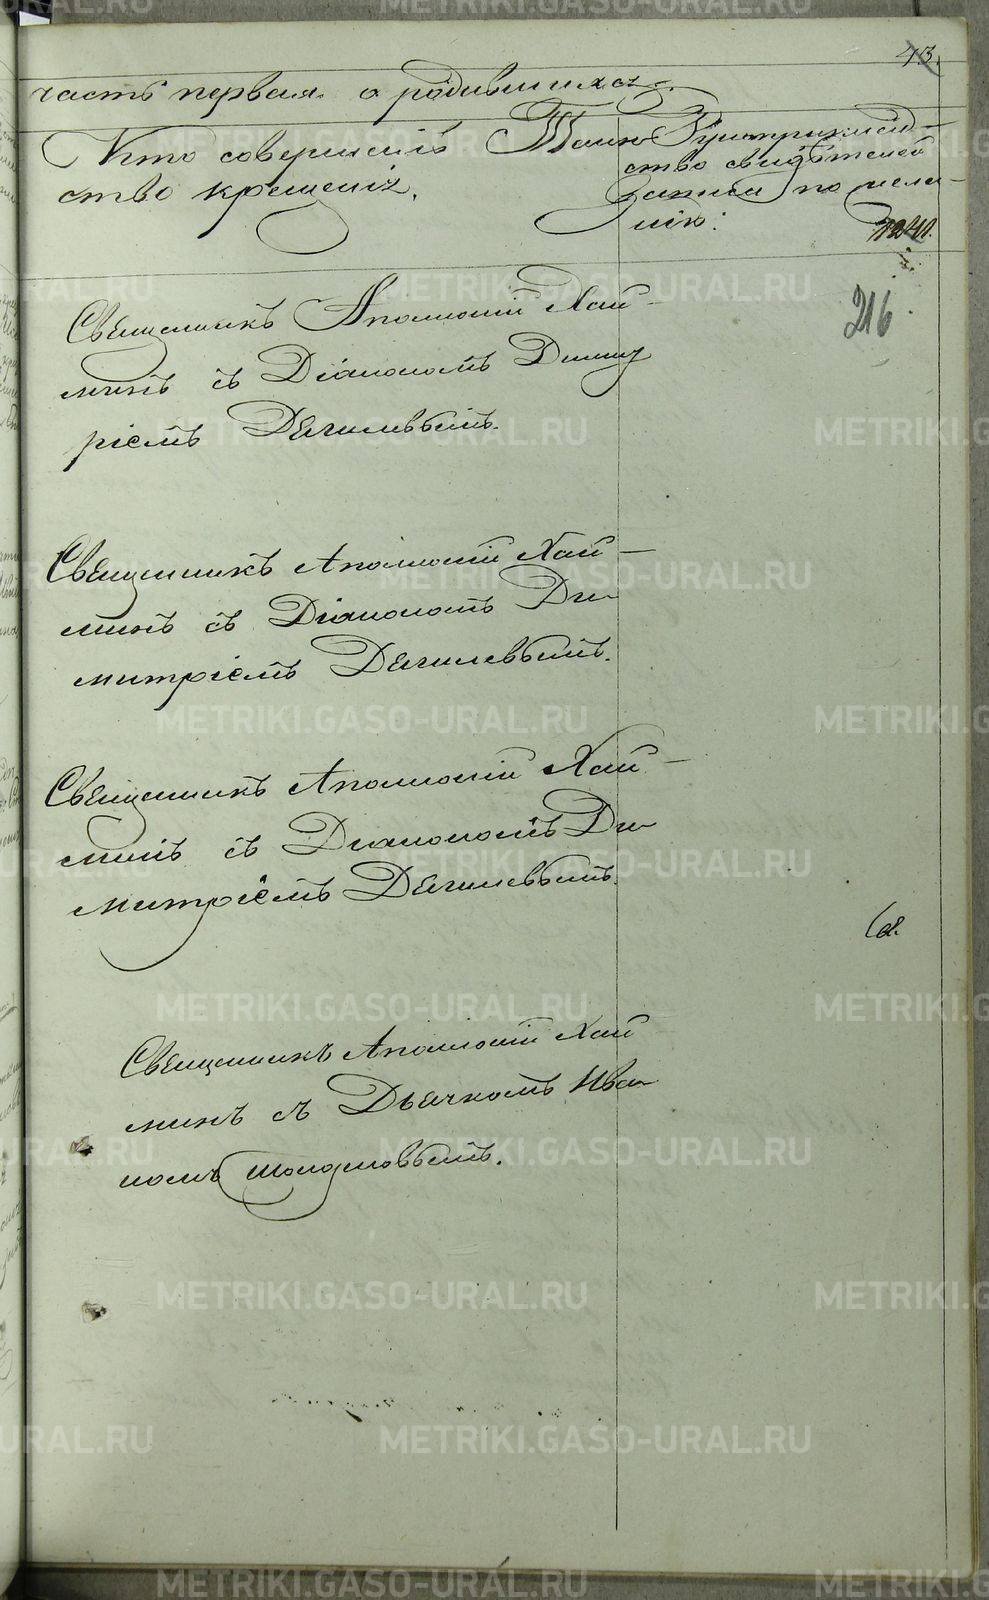 43.
часть первая о родившихся.
Кто совершилъ Таин-
ство крещенія.
Рукоприклад-
ство свидѣтелей
записи по жела-
нію:
1241.
216
Священникъ Аполлоній Хай-
минъ съ Діакономъ Димит
ріемъ Дягилевымъ.
Священникъ Аполлоній Хай-
минъ съ Діакономъ Ди-
митріемъ Дягилевымъ.
Священникъ Аполлоній Хай-
минъ съ Діакономъ Ди-
митріемъ Дягилевымъ.
Священникъ Аполлоній Хай
минъ съ Дьячкомъ Ива-
номъ
METRIKI.GASO-URAL.RU